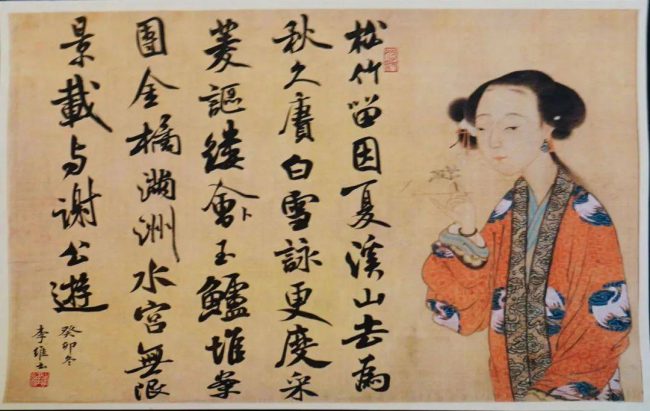 松竹留因夏溪山去為
秋久賡白雪詠更度采
菱謳縷會卜玉鱸堆案
團金橘滿洲水宮無限
景載与謝公遊
癸卯冬
李維士